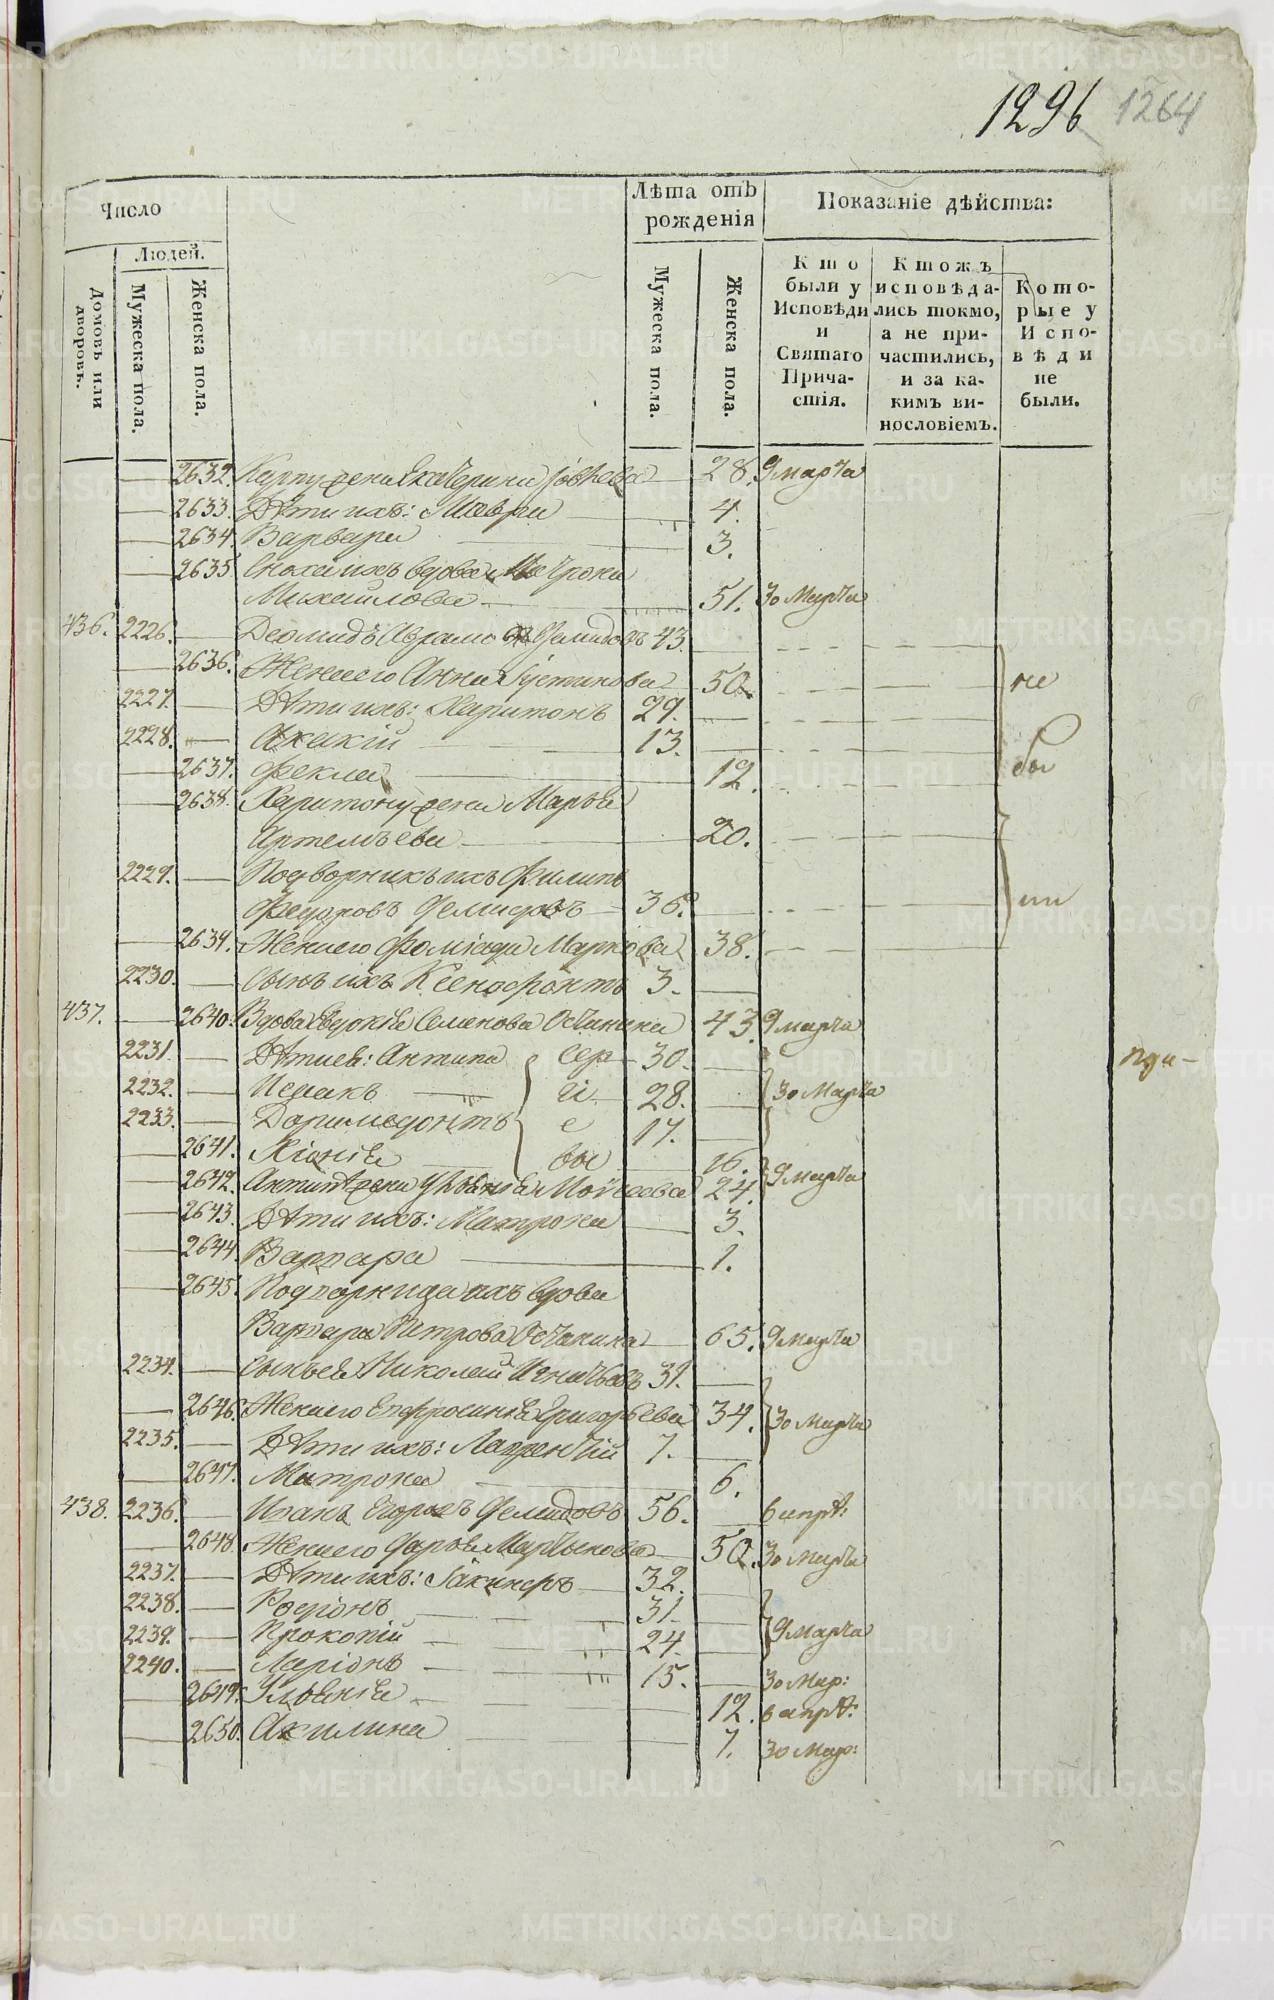 METRIKI.GASO-URAL.RU
1296 1264
Число
Лѣта отъ рожденія
Показаніе дѣйства:
Людей.
Домовъ или дворовъ.
Мужеска пола.
Женска пола.
Мужеска пола.
Женска пола.
Кто были у Исповѣди и Святаго Причастія.
Ктожъ исповѣдались токмо, а не причастились, и за какимъ винословіемъ.
Которые у Исповѣди не были.
2632. Карпу жена Екатерина 28. 9 марта
2633. Дѣти ихъ: Мавра 4.
2634. Варвара 3.
2635 вдова Матрона
Михайлова 51. 30 Марта
436. 2226. Деомидъ Авраамо Демидовъ 43.
2636. Жена его Анна Іустинова 50
2227. Дѣти ихъ: Харитонъ 29. не
2228. Акакій 13.
2637. Фекла 12. бы
2638. Харитону жена Марья
Артемьева 20.
2229. Подворникъ ихъ Филипъ
Федоровъ Демидовъ 36. ли
2639. Жена его Маркова 38.
2230. Сынъ ихъ Ксенофонтъ 3.
437. 2640. Вдова Евдокія Семенова Осчанина 43. 9 марта
2231. Дѣти ея: Антипа Сер 30.
2232. Исаакъ гі 28. 30 Марта
2233. Доримедонтъ е 17.
2641. Хіонія вы 16.
2642. Антипѣ жена Ульянія Моисеева 24. 9 марта
2643. Дѣти ихъ: Матрона 3.
2644. Варвара 1.
2645. Подворница ихъ вдова
Варвара Петрова Осчанина 65. 9 марта
2234. Сынъ ея Николай Игнатьевъ 31.
2646. Жена его Епфросинія Григорьева 34. 30 Марта
2235. Дѣти ихъ: Лаврентій 7.
2647. Матрона 6.
438. 2236. Иванъ Егоровъ Демидовъ 56. 6 апрѣ:
2648. Жена его Дарья Мартынова 50. 30 марта
2237. Дѣти ихъ: Іакинфъ 32.
2238. Родіонъ 31.
2239. Прокопій 24. 9 Марта
2240. Ларіонъ 15. 30 Мар:
2649. Ульянія 12. 6 апрѣ:
2650. Акилина 7. 30 Мар: